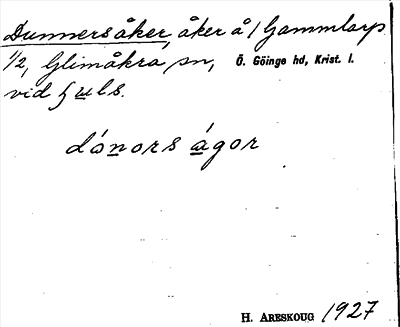 Dunnersåker, åker å 1 Gammlarp
1/2, Glimåkra sn, Ö. Göinge hd, Krist. l.
vid
dónors ágor
H. ARESKOUG 1927